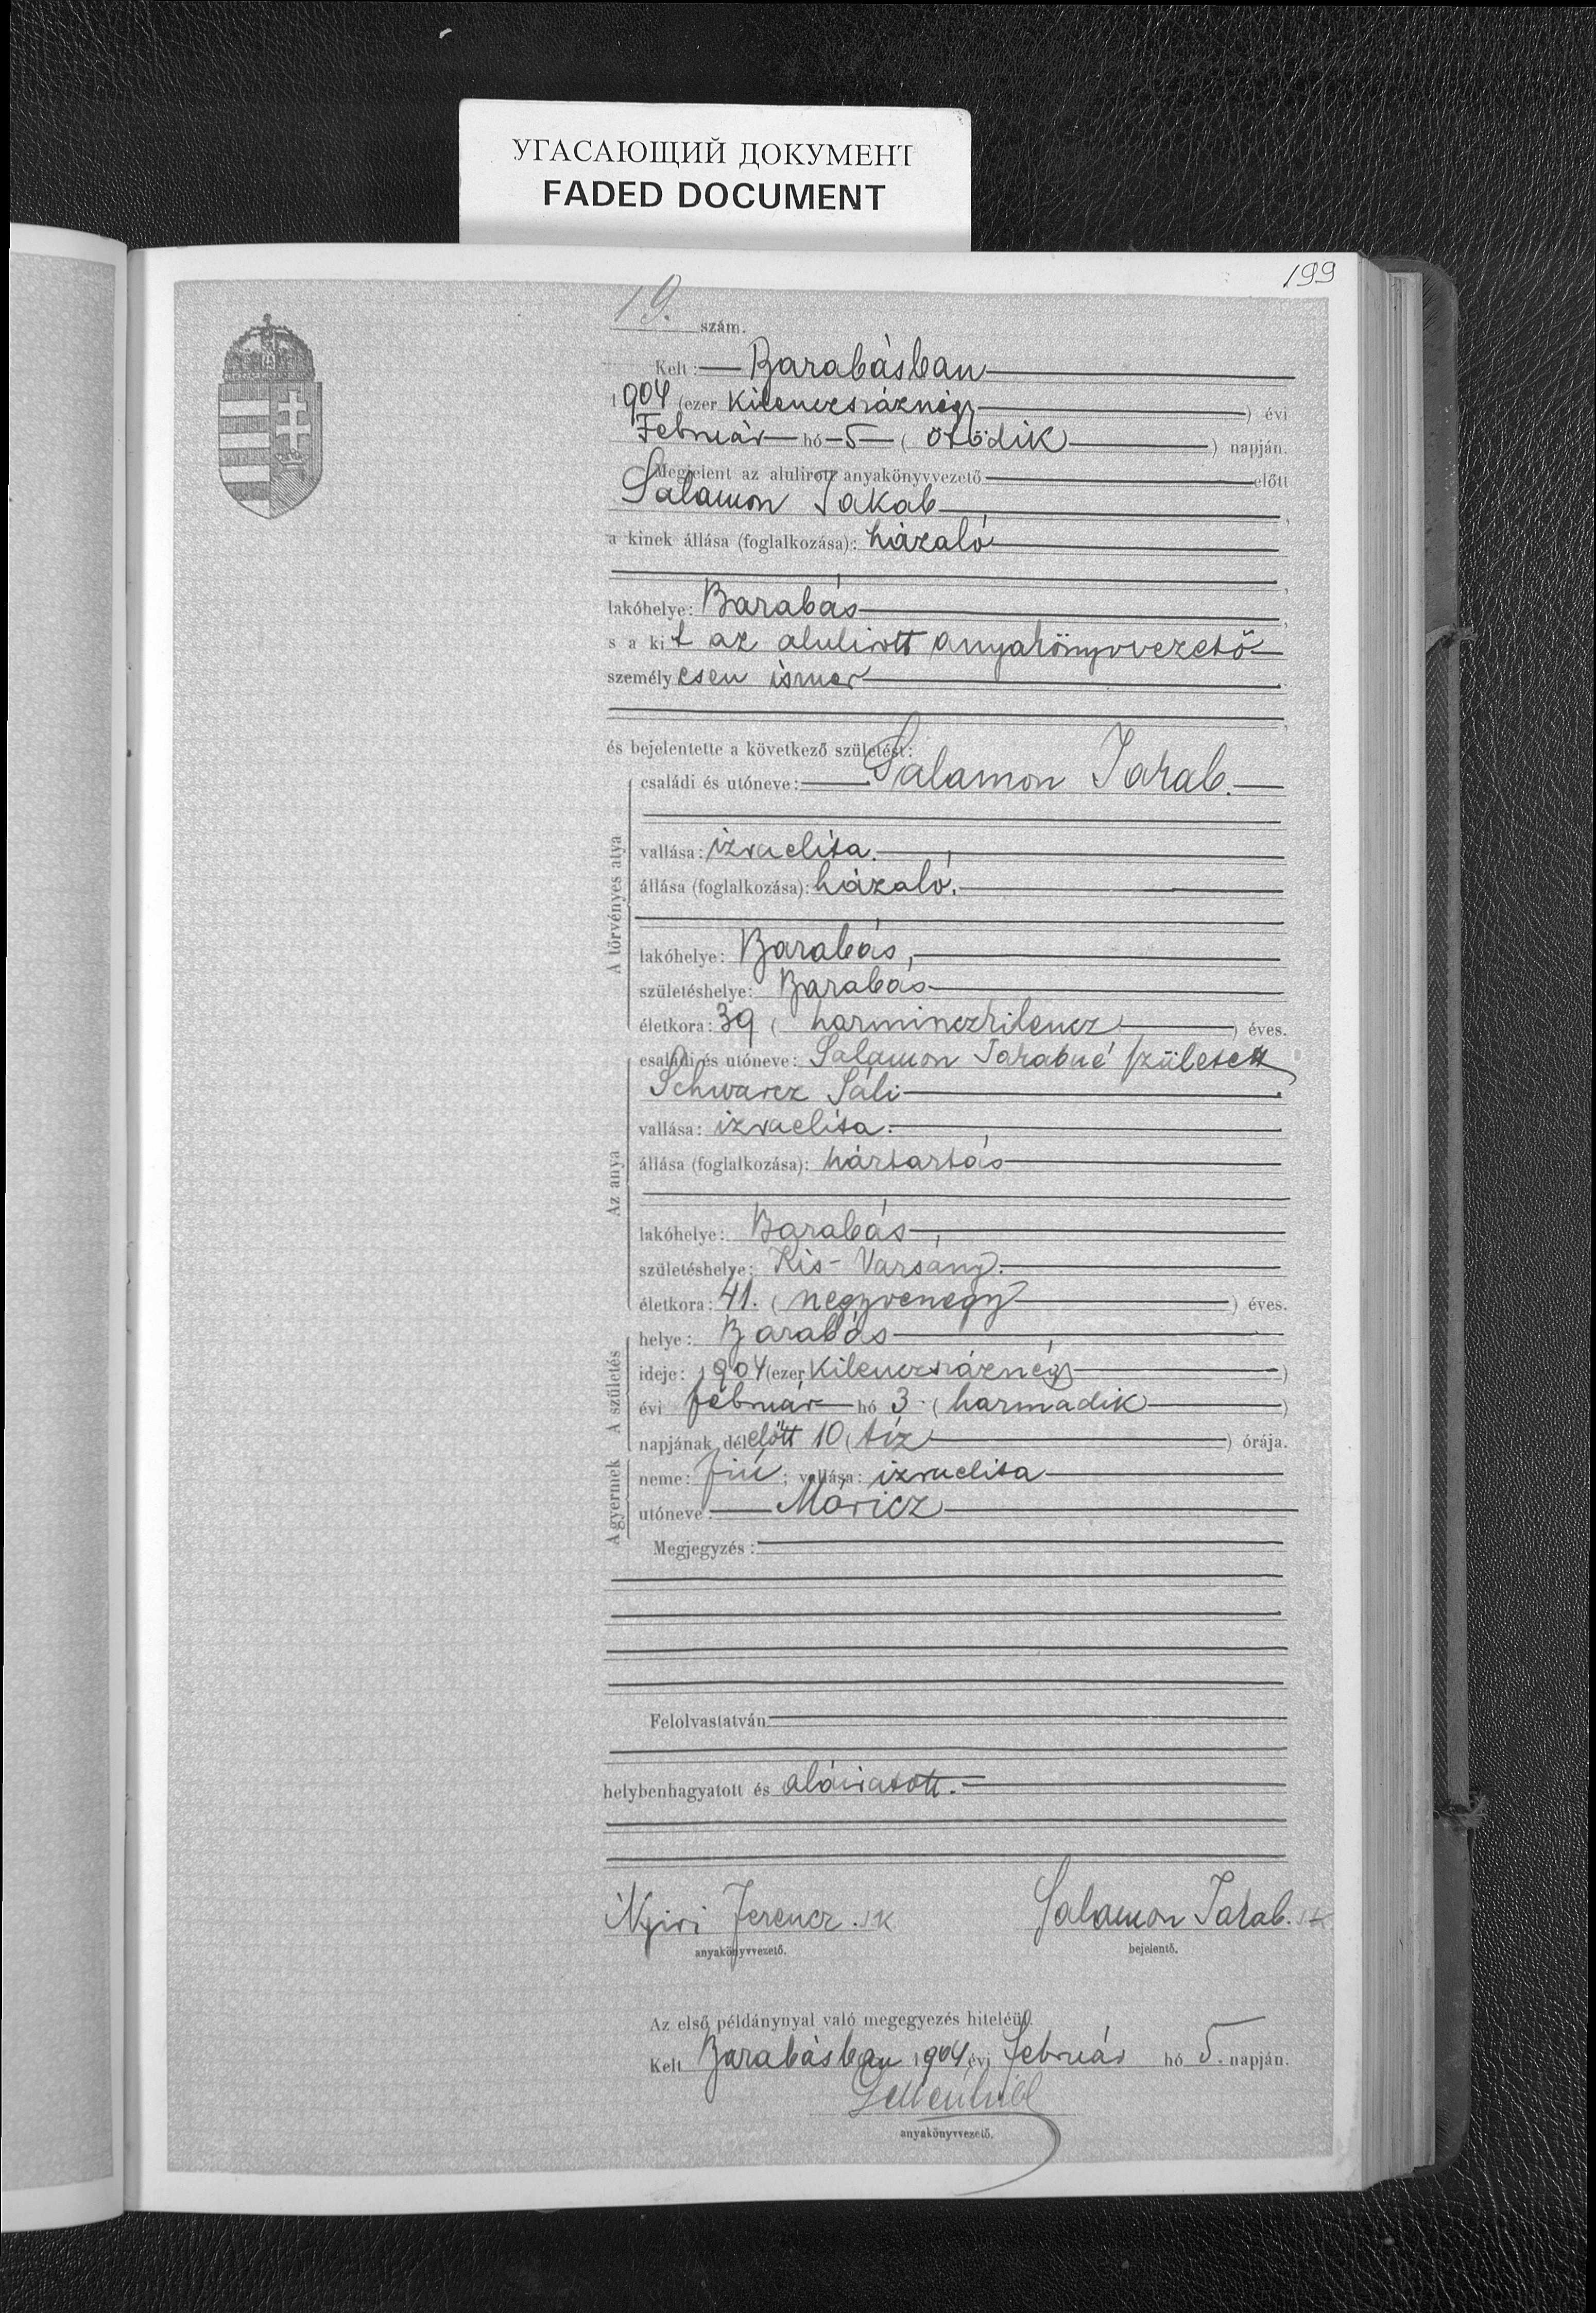 УГАСАЮЩИЙ ДОКУМЕНТ
FADED DOCUMENT
199
19. szám.
Kelt: Barabásban
1904 (ezer kilenczszáznégy) évi
Február hó 5 (ötödik) napján.
Megjelent az alulirott anyakönyvvezető előtt
Salamon Jakab,
a kinek állása (foglalkozása): házaló
lakóhelye: Barabás,
s a kit az alulirott anyakönyvvezető
személyesen ismer
és bejelentette a következő születést:
A törvényes atya
családi és utóneve: Salamon Jakab.
vallása: izraelita.
állása (foglalkozása): házaló.
lakóhelye: Barabás,
születéshelye: Barabás
életkora: 39 (harminczkilencz) éves.
Az anya
családi és utóneve: Salamon Jakabné született
Schwarcz Sáli
vallása: izraelita.
állása (foglalkozása): háztartás
lakóhelye: Barabás,
születéshelye: Kis-Varsány.
életkora: 41. (negyvenegy) éves.
A születés
helye: Barabás
ideje: 1904 (ezer kilenczszáznégy)
évi február hó 3 (harmadik)
napjának délelőtt 10 (tíz) órája.
A gyermek
neme: fiú; vallása: izraelita
utóneve: Móricz
Megjegyzés:
Felolvastatván
helybenhagyatott és aláiratott.
Nyiri Ferencz. sk Salamon Jakab. sk
anyakönyvvezető. bejelentő.
Az első példánynyal való megegyezés hiteléül.
Kelt Barabásban 1904 évi február hó 5. napján.
anyakönyvvezető.